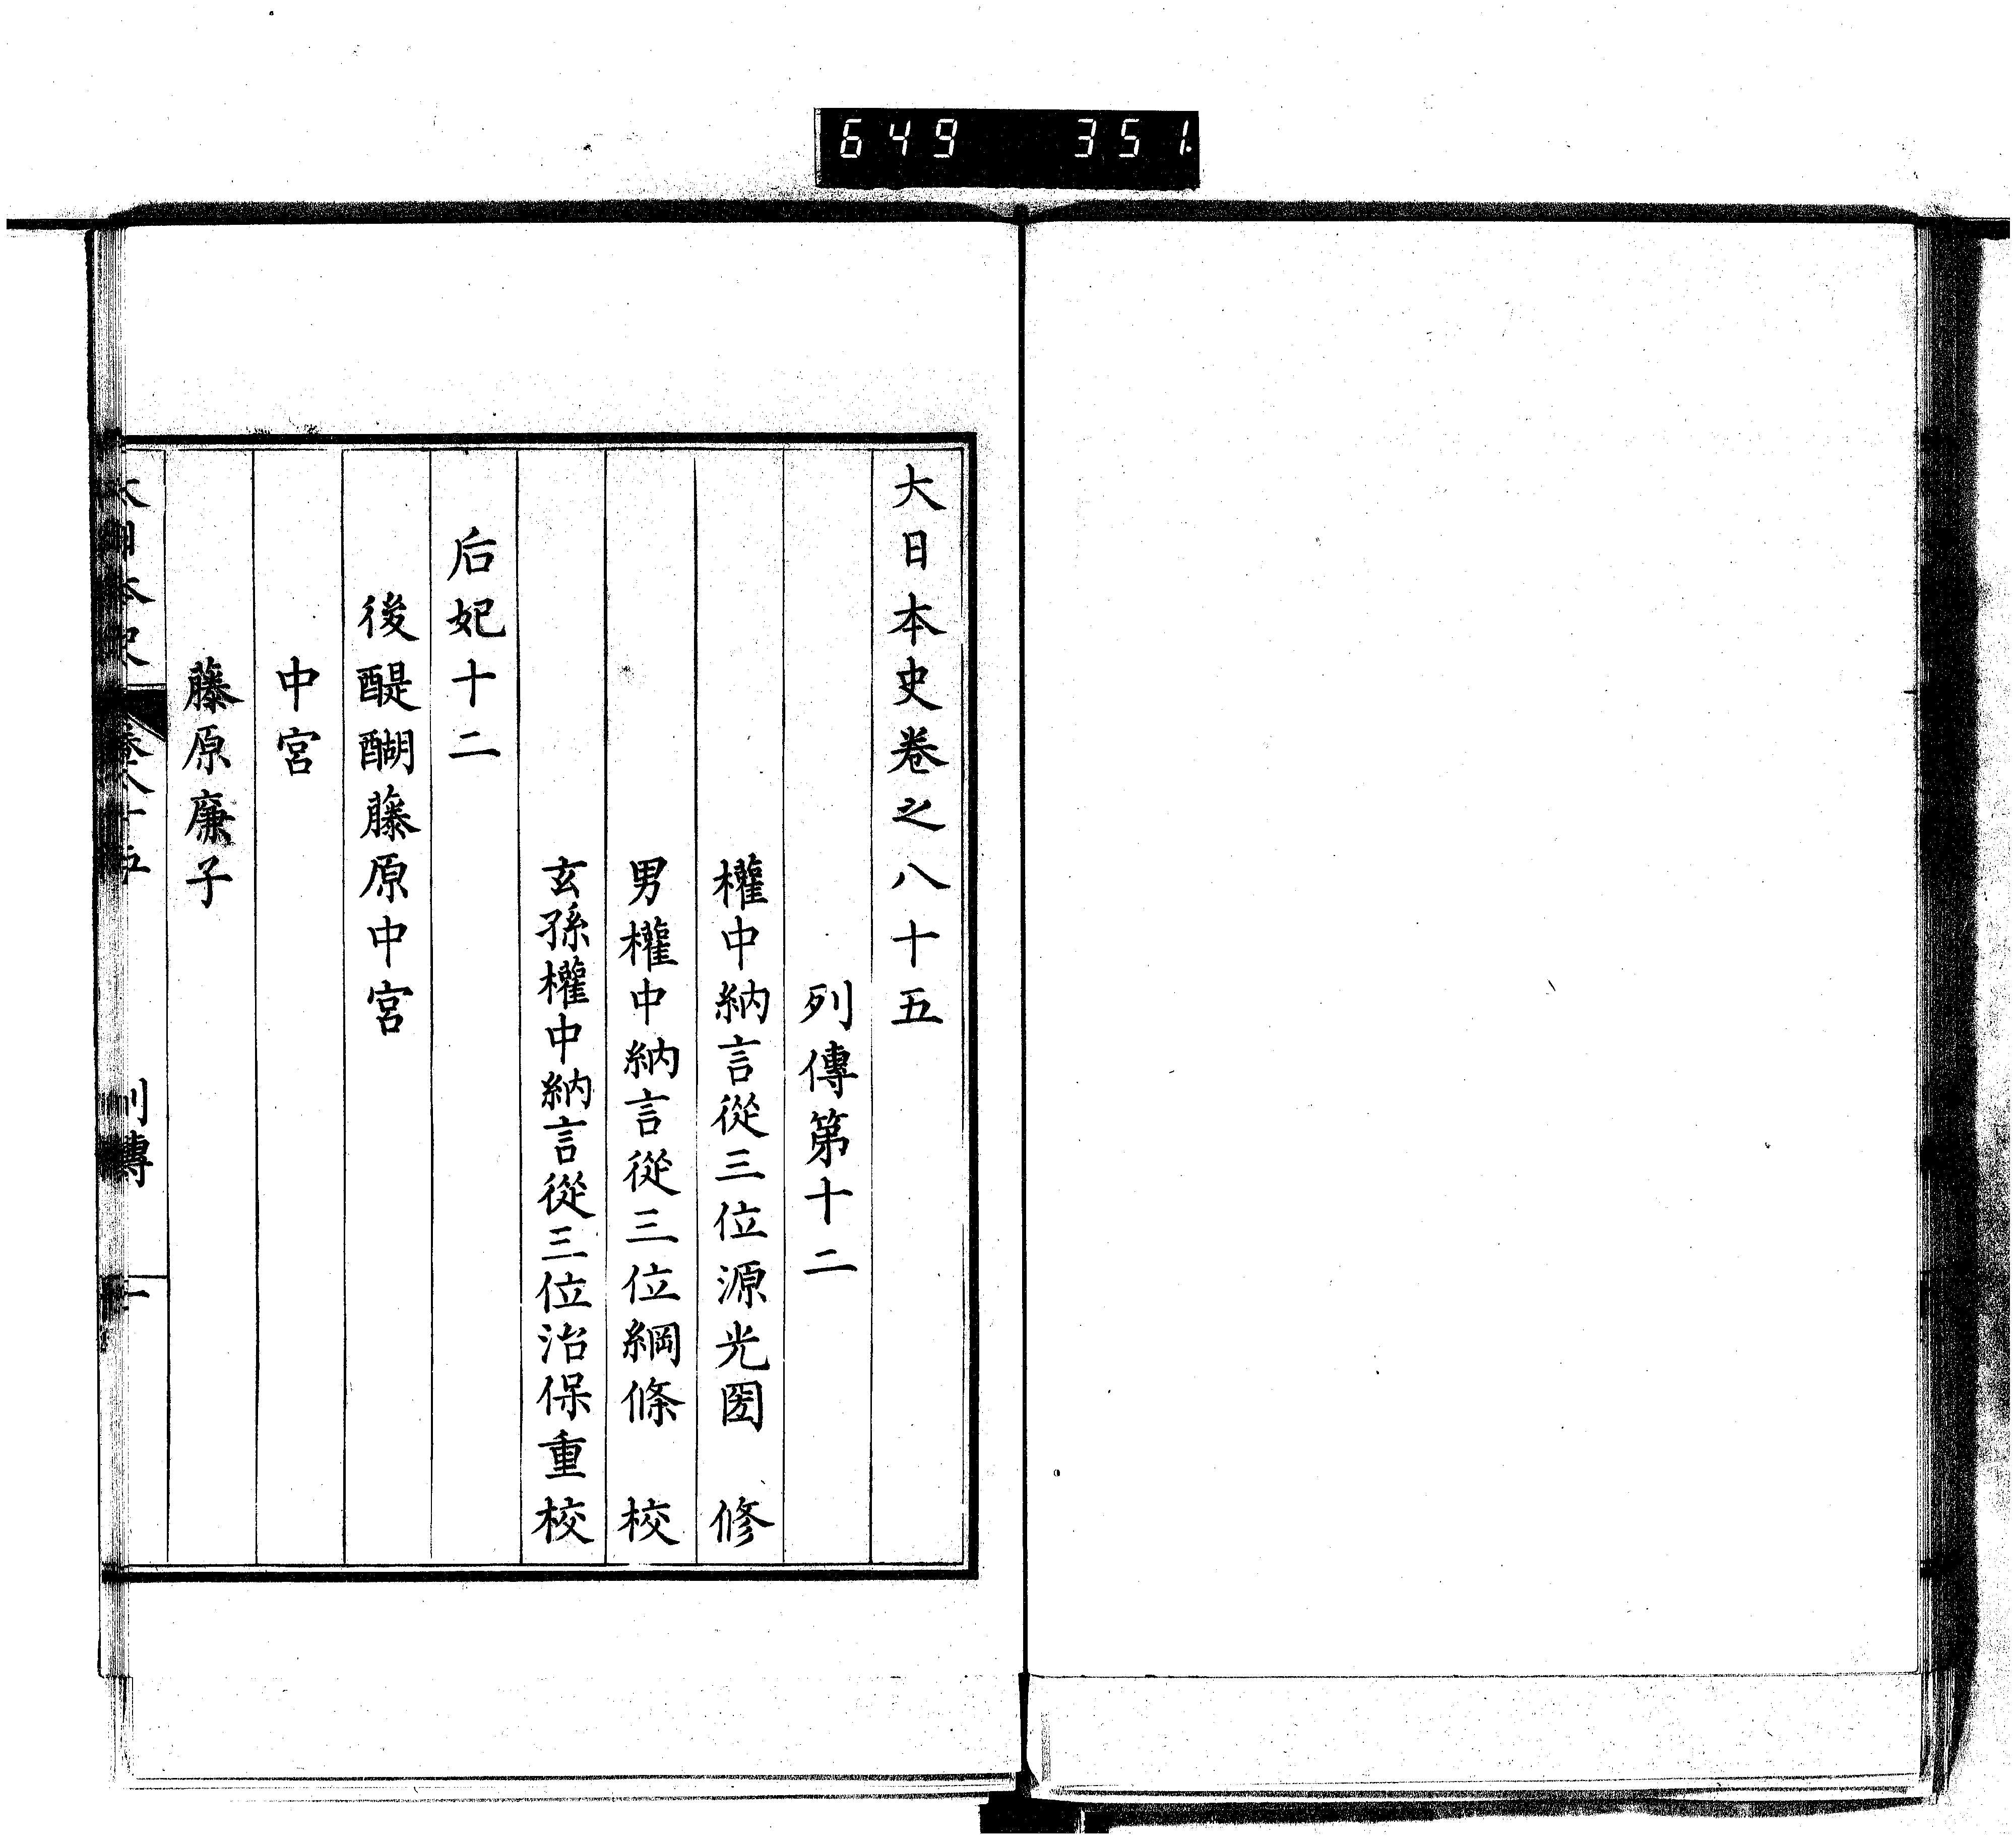 649 351.
大日本史卷之八十五
列傳第十二
權中納言從三位源光圀 修
男權中納言從三位綱條 校
玄孫權中納言從三位治保重校
后妃十二
後醍醐藤原中宮
中宮
藤原廉子
大日本史 卷八十五 列傳 一